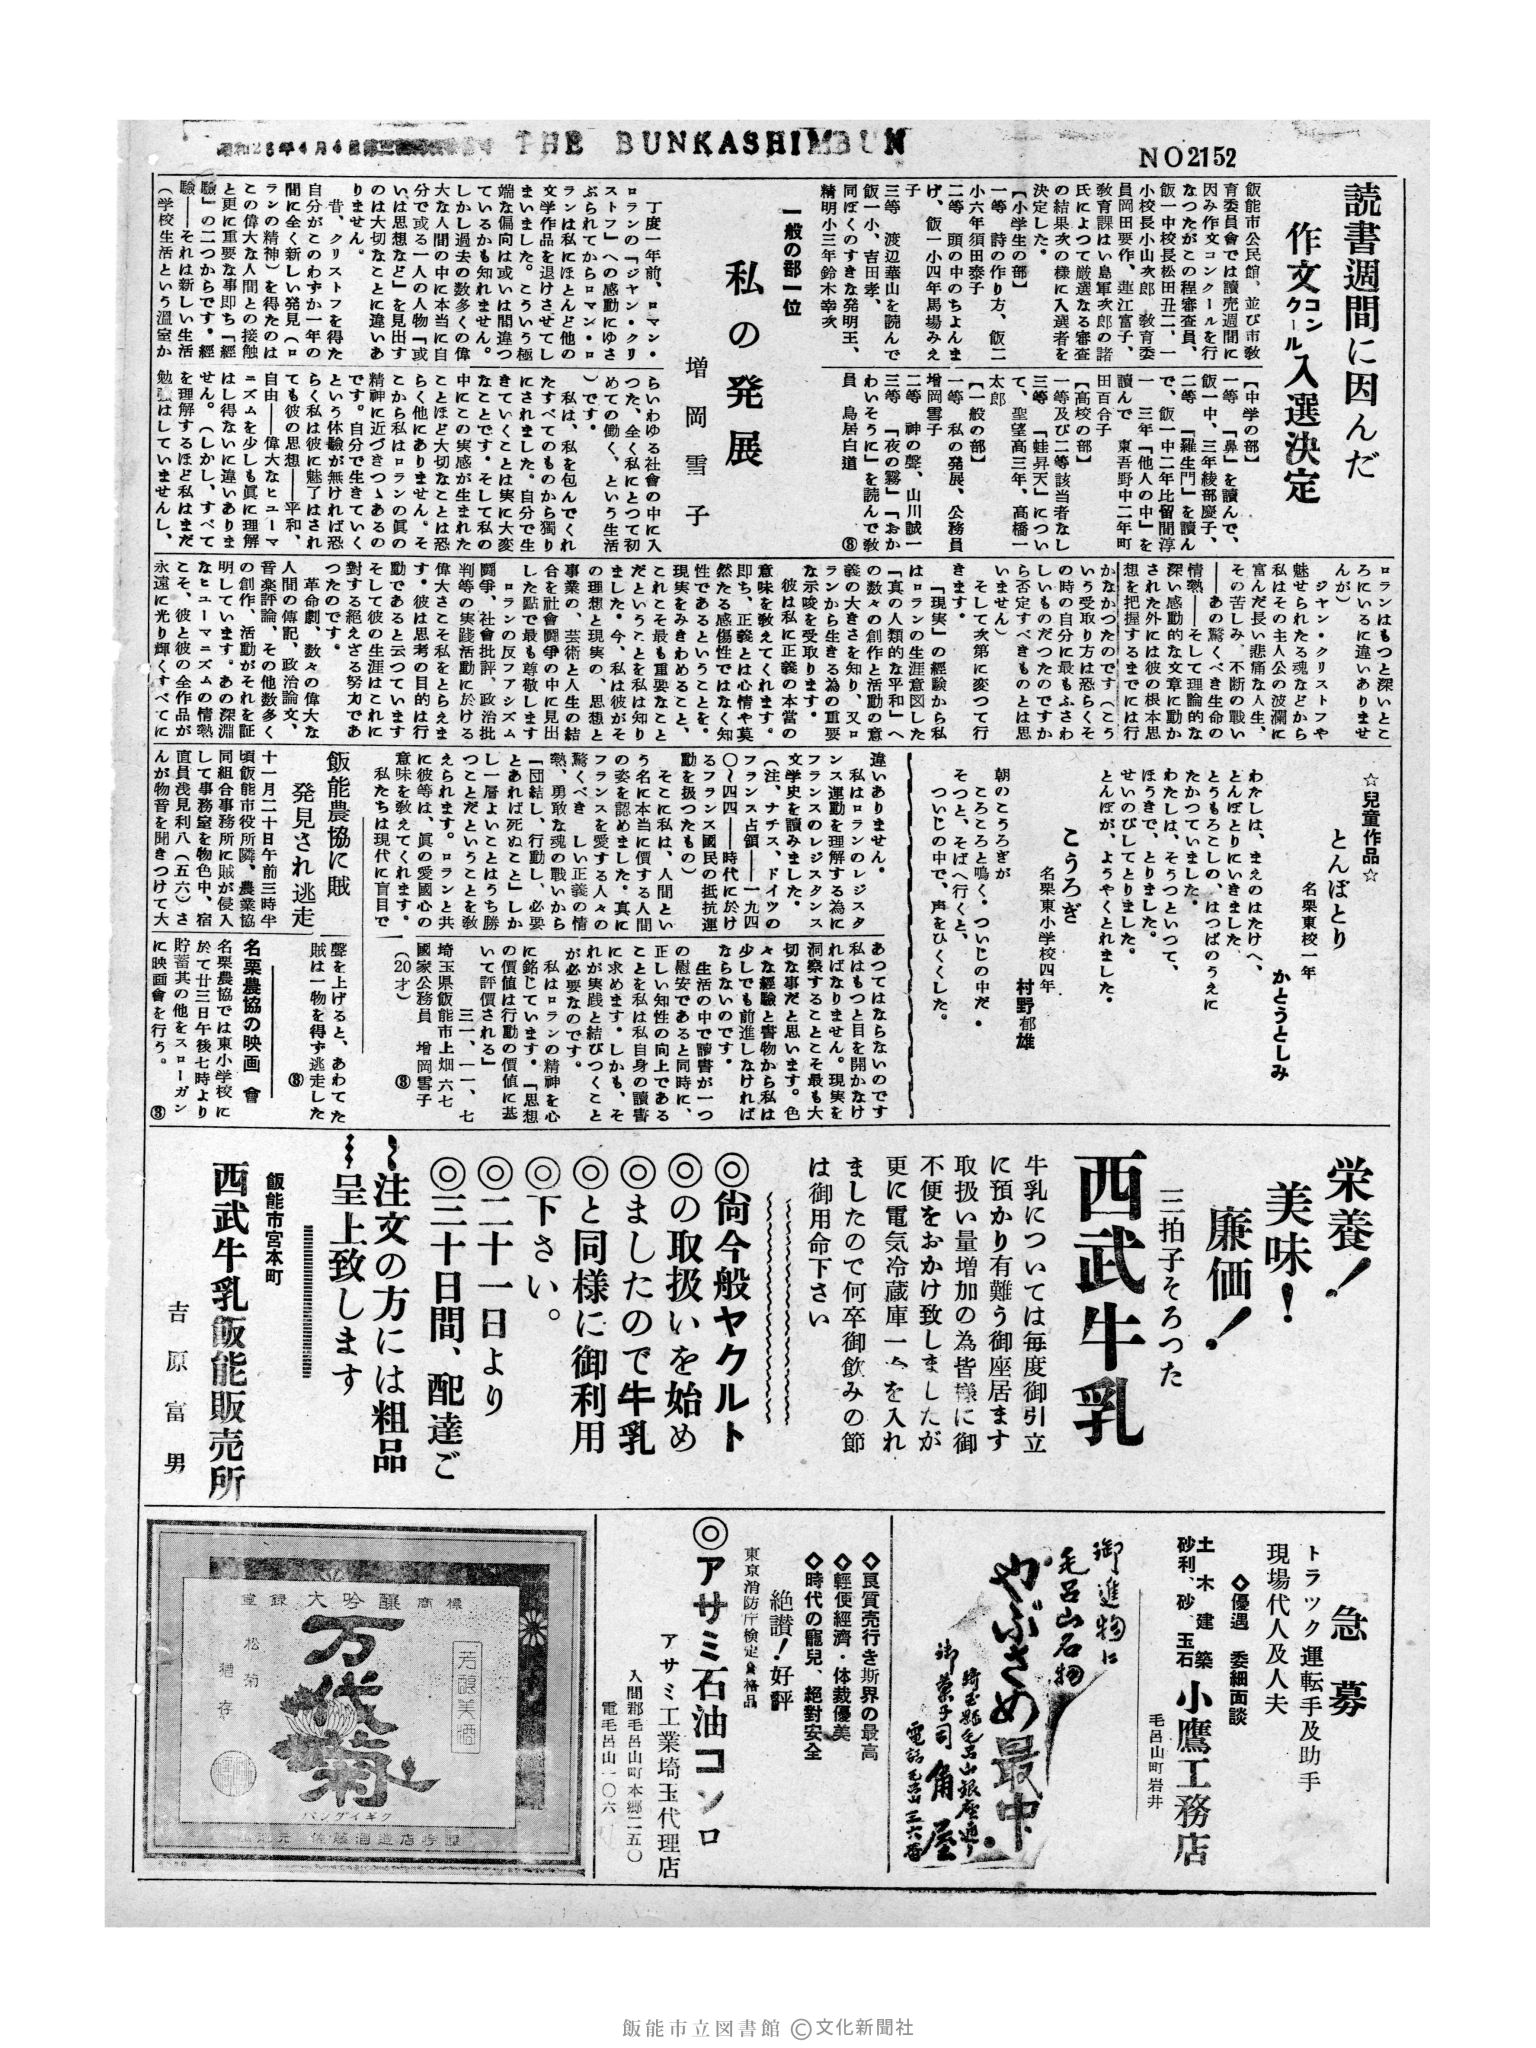 THE BUNKASHIMBUN
NO2152
読書週間に因んだ
作文コンクール入選決定
飯能市公民館、並び市敎
育委員會では読売週間に
因み作文コンクールを行
なつたがこの程審査員、
飯一中校長松田丑二、一
小校長小山次郎 敎育委
員岡田要作、蓮江富子、
敎育課はい島軍次郎の諸
氏によつて厳選なる審査
の結果次の様に入選者を
決定した。
【小学生の部】
一等 詩の作り方、飯二
小六年須田泰子
二等 頭の中のちよんま
げ、飯一小四年馬場みえ
子
三等 渡辺華山を読んで
飯一小、吉田孝、
同ぼくのすきな発明王、
精明小三年鈴木幸次
【中学の部】
一等、「鼻」を讀んで、
飯一中、三年綾部慶子、
二等 「羅生門」を讀ん
で、飯一中二年比留間淳
一 三年「他人の中」を
讀んで 東吾野中二年町
田百合子
【高校の部】
一等及び二等該当者なし
三等 「蛙昇天」につい
て、聖望高三年、高橋一
太郎
【一般の部】
一等 私の発展、公務員
増岡雪子
二等 神の聲、山川誠一
三等 「夜の霧」「おか
わいそうに」を読んで敎
員、鳥居白道 ⑧
一般の部一位
私の発展
増岡雪子
丁度一年前、ロマン・
ロランの「ジャン・クリ
ストフ」への感動にゆさ
ぶられてからロマン・ロ
ランは私にほとんど他の
文学作品を退けさせてし
まいました。こういう極
端な偏向は或いは間違つ
ているかも知れません。
しかし過去の数多くの偉
大な人間の中に本当に自
分で或る一人の人物「或
いは思想など」を見出す
のは大切なことに違いあ
りません。
昔、クリストフを得た
自分がこのわずか一年の
間に全く新しい発見（ロ
ランの精神）を得たのは
この偉大な人間との接触
と更に重要な事即ち「經
驗」の二つからです・經
驗――それは新しい生活
（学校生活という溫室か
らいわゆる社會の中に入
つた、全く私にとつて初
めての働く、という生活
）です。
私は、私を包んでくれ
たすべてのものから獨り
にされました。自分で生
きていくことは実に大変
なことです・そして私の
中にこの実感が生まれた
ことほど大切なことは恐
らく他にありません。そ
こから私はロランの眞の
精神に近づきつゝあるの
です。自分で生きていく
という体驗が無ければ恐
らく私は彼に魅了はされ
ても彼の思想――平和、
自由――偉大なヒューマ
ニズムを少しも眞に理解
はし得ないに違いありま
せん。（しかし、すべて
を理解するほど私はまだ
勉强はしていませんし、
ロランはもつと深いとこ
ろにいるに違いありませ
んが）
ジャン・クリストフや
魅せられたる魂などから
私はその主人公の波瀾に
富んだ長い悲痛な人生、
その苦しみ、不断の戰い
――あの驚くべき生命の
情熱――そして理論的な
深い感動的な文章に動か
された外には彼の根本思
想を把握するまでには行
かなかつたのです（こう
いう受取り方は恐らくそ
の時の自分に最もふさわ
しいものだつたのですか
ら否定すべきものとは思
いません）
そして次第に変つて行
きます。
「現実」の經驗から私
はロランの生涯意図した
「真の人類的な平和」へ
の数々の創作と活動の意
義の大きさを知り、又ロ
ランから生きる為の重要
な示唆を受取ります。
彼は私に正義の本当の
意味を敎えてくれます。
即ち、正義とは心情や莫
然たる感傷性ではなく知
性であるということを。
現実をみきわめること、
これこそ最も重要なこと
だということを私は知り
ました・今、私は彼がそ
の理想と現実の、思想と
事業の、芸術と人生の結
合を社會闘争の中に見出
した點で最も尊敬します
ロランの反ファシズム
闘爭、社會批評、政治批
判等の実践活動に於ける
偉大さこそ私をとらえま
す・彼は思考の目的は行
動であると云つています
そして彼の生涯はこれに
對する絕えざる努力であ
つたのです。
革命劇、数々の偉大な
人間の傳記、政治論文、
音楽評論、その他数多く
の創作、活動がそれを証
明しています。あの深淵
なヒューマニズムの情熱
こそ、彼と彼の全作品が
永遠に光り輝くすべてに
違いありません・
私はロランのレジスタ
ンス運動を理解する為に
フランスのレジスタンス
文学史を讀みました。
（注、ナチス、ドイツの
フランス占領――一九四
〇～四四――時代に於け
るフランス國民の抵抗運
動を扱つたもの）
そこに私は、人間とい
う名に本当に價する人間
の姿を認めました。真に
フランスを愛する人々の
驚くべき しい正義の情
熱、勇敢な魂の戰いから
「団結し、行動し、必要
とあれば死ぬこと」しか
し一層よいことはうち勝
つことだということを敎
えられます。ロランと共
に彼等は、眞の愛國心の
意味を敎えてくれます。
私たちは現代に盲目で
あつてはならないのです
私はもつと目を開かなけ
ればなりません。現実を
洞察することこそ最も大
切な事だと思います。色
々な經驗と書物から私は
少しでも前進しなければ
ならないのです・
生活の中で讀書が一つ
の慰安であると同時に、
正しい知性の向上である
ことを私は私自身の讀書
に求めます・しかも、そ
れが実践と結びつくこと
が必要なのです。
私はロランの精神を心
に銘じています・「思想
の價値は行動の價値に基
いて評價される」
三一、一一、七
埼玉県飯能市上畑六七
國家公務員 增岡雪子
（20才） ⑧
☆兒童作品☆
とんぼとり
名栗東校一年
かとうとしみ
わたしは、まえのはたけへ、
とんぼとりにいきました、
とうもろこしの、はつぱのうえに
たかつていました。
わたしは、そうつといつて、
ほうきで、とりました。
せいのびしてとりました。
とんぼが、ようやくとれました・
こうろぎ
名栗東小学校四年
村野郁雄
朝のこうろぎが
ころころと鳴く・ついじの中だ・
そつと、そばへ行くと、
ついじの中で、声をひくくした。
飯能農協に賊
発見され逃走
十一月二十日午前三時半
頃飯能市役所隣、農業協
同組合事務所に賊が侵入
して事務室を物色中、宿
直員浅見利八（五六）さ
んが物音を聞きつけて大
聲を上げると、あわてた
賊は一物を得ず逃走した
⑧
名栗農協の映画會
名栗農協では東小学校に
於て廿三日午後七時より
貯蓄其の他をスローガン
に映画會を行う。 ⑧
栄養！
美味！
廉価！
三拍子そろつた
西武牛乳
牛乳については毎度御引立
に預かり有難う御座居ます
取扱い量増加の為皆様に御
不便をおかけ致しましたが
更に電気冷蔵庫一ヶを入れ
ましたので何卒御飲みの節
は御用命下さい
◎尙今般ヤクルト
◎の取扱いを始め
◎ましたので牛乳
◎と同様に御利用
◎下さい。
◎二十一日より
◎三十日間、配達ご
注文の方には粗品
呈上致します
飯能市宮本町
西武牛乳飯能販売所
吉原富男
急募
トラック運転手及助手
現場代人及人夫
◇優遇 委細面談
土木建築
砂利、砂、玉石
小鷹工務店
毛呂山町岩井
御進物に
毛呂山名物
やぶさめ最中
埼玉縣毛呂山銀座通り
御菓子司 角屋
電話毛呂山三六番
◇良質売行き斯界の最高
◇輕便經済・体裁優美
◇時代の寵兒、絕對安全
絶讃！好評
東京消防庁検定合格品
◎アサミ石油コンロ
アサミ工業埼玉代理店
入間郡毛呂山町本郷二五〇
電毛呂山一〇六
登録 大吟醸 商標
芳醸美酒
万代菊
松菊
猶存
バンダイギク
飯能市立図書館 ©文化新聞社